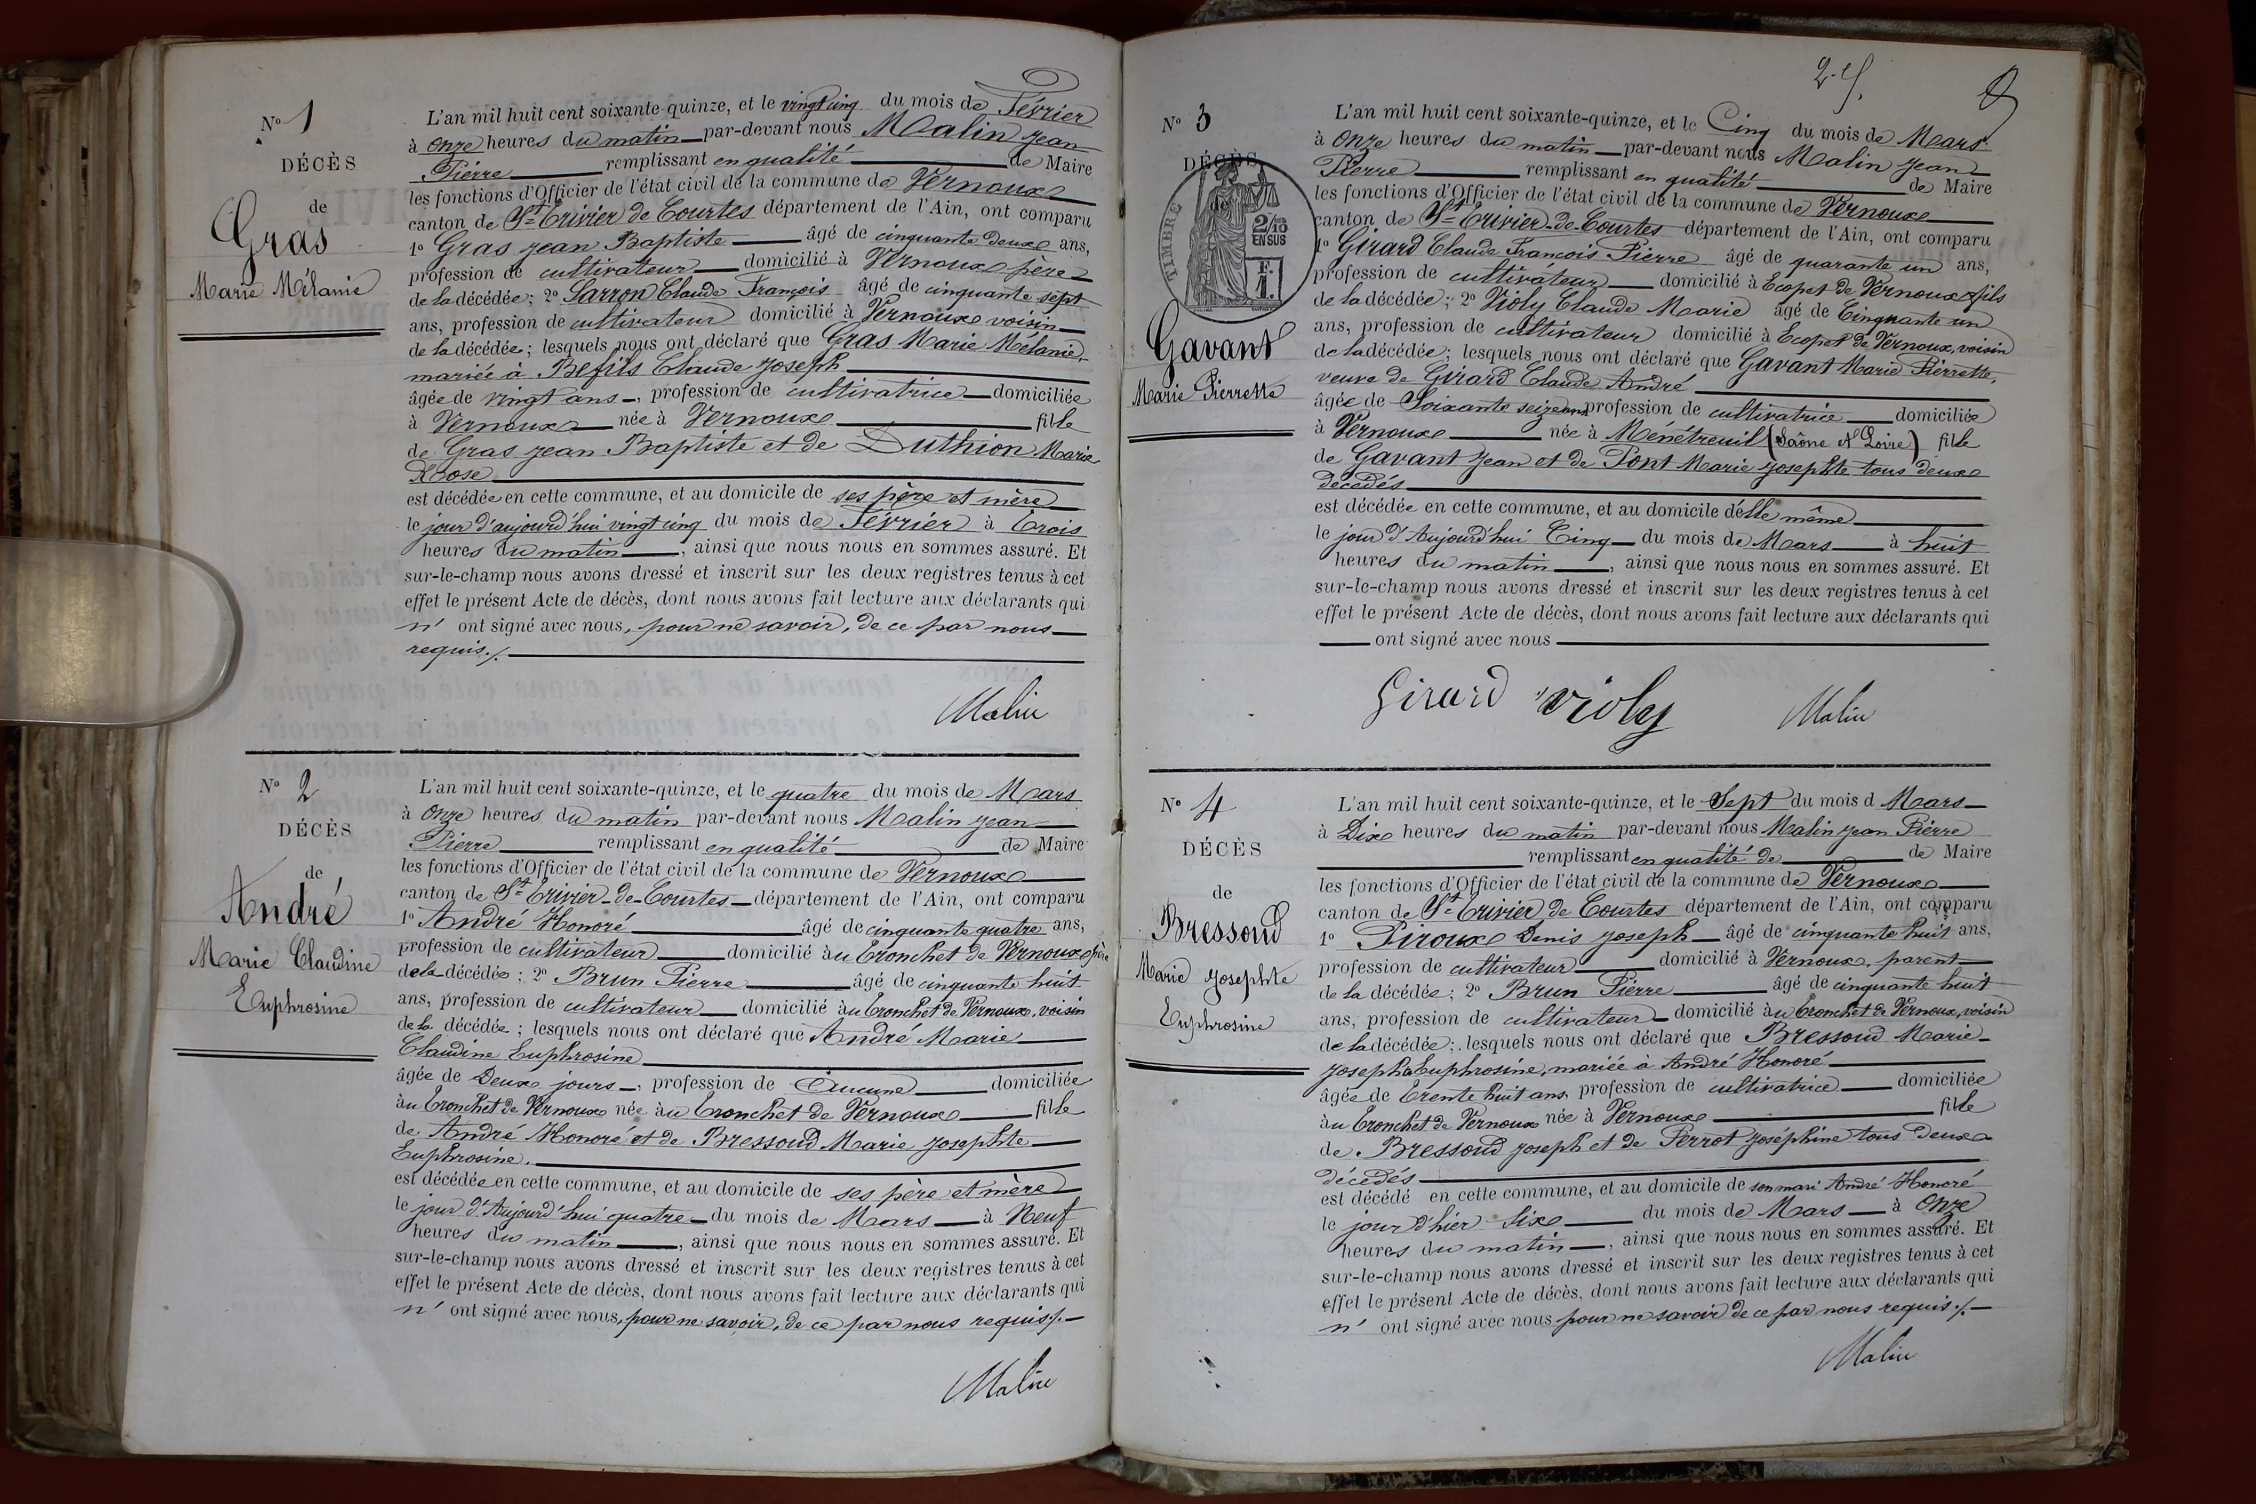 N° 1
DÉCÈS
de
Gras
Marie Mélanie
L'an mil huit cent soixante-quinze, et le vingt cinq du mois de Février
à onze heures du matin par-devant nous Malin Jean
Pierre remplissant en qualité de Maire
les fonctions d'Officier de l'état civil de la commune de Vernoux
canton de St Trivier de Courtes département de l'Ain, ont comparu
1° Gras Jean Baptiste âgé de cinquante deux ans,
profession de cultivateur domicilié à Vernoux père
de la décédée; 2° Sarron Claude François âgé de cinquante sept
ans, profession de cultivateur domicilié à Vernoux voisin
de la décédée; lesquels nous ont déclaré que Gras Marie Mélanie,
mariée à Befils Claude Joseph
âgée de vingt ans, profession de cultivatrice domiciliée
à Vernoux née à Vernoux fille
de Gras Jean Baptiste et de Duthion Marie
Rose
est décédée en cette commune, et au domicile de ses père et mère
le jour d'aujourd'hui vingt cinq du mois de Février à trois
heures du matin, ainsi que nous nous en sommes assuré. Et
sur-le-champ nous avons dressé et inscrit sur les deux registres tenus à cet
effet le présent Acte de décès, dont nous avons fait lecture aux déclarants qui
n' ont signé avec nous, pour ne savoir, de ce par nous
requis./.
Malin
N° 2
DÉCÈS
de
André
Marie Claudine
Euphrosine
L'an mil huit cent soixante-quinze, et le quatre du mois de Mars
à onze heures du matin par-devant nous Malin Jean
Pierre remplissant en qualité de Maire
les fonctions d'Officier de l'état civil de la commune de Vernoux
canton de St Trivier-de-Courtes département de l'Ain, ont comparu
1° André Honoré âgé de cinquante quatre ans,
profession de cultivateur domicilié au Tronchet de Vernoux père
de la décédée; 2° Brun Pierre âgé de cinquante huit
ans, profession de cultivateur domicilié au Tronchet de Vernoux, voisin
de la décédée; lesquels nous ont déclaré que André Marie
Claudine Euphrosine
âgée de Deux jours, profession de Aucune domiciliée
àu Tronchet de Vernoux née àu Tronchet de Vernoux fille
de André Honoré et de Bressoud Marie Josephte
Euphrosine.
est décédée en cette commune, et au domicile de ses père et mère
le jour d'Aujourd'hui quatre du mois de Mars à Neuf
heures du matin, ainsi que nous nous en sommes assuré. Et
sur-le-champ nous avons dressé et inscrit sur les deux registres tenus à cet
effet le présent Acte de décès, dont nous avons fait lecture aux déclarants qui
n' ont signé avec nous, pour ne savoir, de ce par nous requis./.
Malin
N° 3
DÉCÈS
de
TIMBRE
2/10
EN SUS
F.
1.
Gavant
Marie Pierrette
L'an mil huit cent soixante-quinze, et le Cinq du mois de Mars
à onze heures du matin par-devant nous Malin Jean
Pierre remplissant en qualité de Maire
les fonctions d'Officier de l'état civil de la commune de Vernoux
canton de St Trivier-de-Courtes département de l'Ain, ont comparu
1° Girard Claude François Pierre âgé de quarante un ans,
profession de cultivateur domicilié à Ecopet de Vernoux fils
de la décédée; 2° Violy Claude Marie âgé de Cinquante un
ans, profession de cultivateur domicilié à Ecopet de Vernoux, voisin
de la décédée; lesquels nous ont déclaré que Gavant Marie Pierrette,
veuve de Girard Claude André
âgée de Soixante seize ans profession de cultivatrice domiciliée
à Vernoux née à Ménétreuil (Saône et Loire) fille
de Gavant Jean et de Pont Marie Josephte tous deux
décédés
est décédée en cette commune, et au domicile d'elle même
le jour d'Aujourd'hui Cinq du mois de Mars à huit
heures du matin, ainsi que nous nous en sommes assuré. Et
sur-le-champ nous avons dressé et inscrit sur les deux registres tenus à cet
effet le présent Acte de décès, dont nous avons fait lecture aux déclarants qui
ont signé avec nous
Girard Violy Malin
N° 4
DÉCÈS
de
Bressoud
Marie Josephte
Euphrosine
L'an mil huit cent soixante-quinze, et le Sept du mois d Mars
à Dix heures du matin par-devant nous Malin Jean Pierre
remplissant en qualité de de Maire
les fonctions d'Officier de l'état civil de la commune de Vernoux
canton de St Trivier de Courtes département de l'Ain, ont comparu
1° Piroux Denis Joseph âgé de cinquante huit ans,
profession de cultivateur domicilié à Vernoux, parent
de la décédée; 2° Brun Pierre âgé de cinquante huit
ans, profession de cultivateur domicilié àu Tronchet de Vernoux, voisin
de la décédée; lesquels nous ont déclaré que Bressoud Marie
Josephte Euphrosine, mariée à André Honoré
âgée de trente huit ans, profession de cultivatrice domiciliée
àu Tronchet de Vernoux née à Vernoux fille
de Bressoud Joseph et de Perrot Joséphine tous deux
décédés
est décédé en cette commune, et au domicile de son mari André Honoré
le jour d'hier Six du mois de Mars à onze
heures du matin, ainsi que nous nous en sommes assuré. Et
sur-le-champ nous avons dressé et inscrit sur les deux registres tenus à cet
effet le présent Acte de décès, dont nous avons fait lecture aux déclarants qui
n' ont signé avec nous pour ne savoir de ce par nous requis./.
Malin